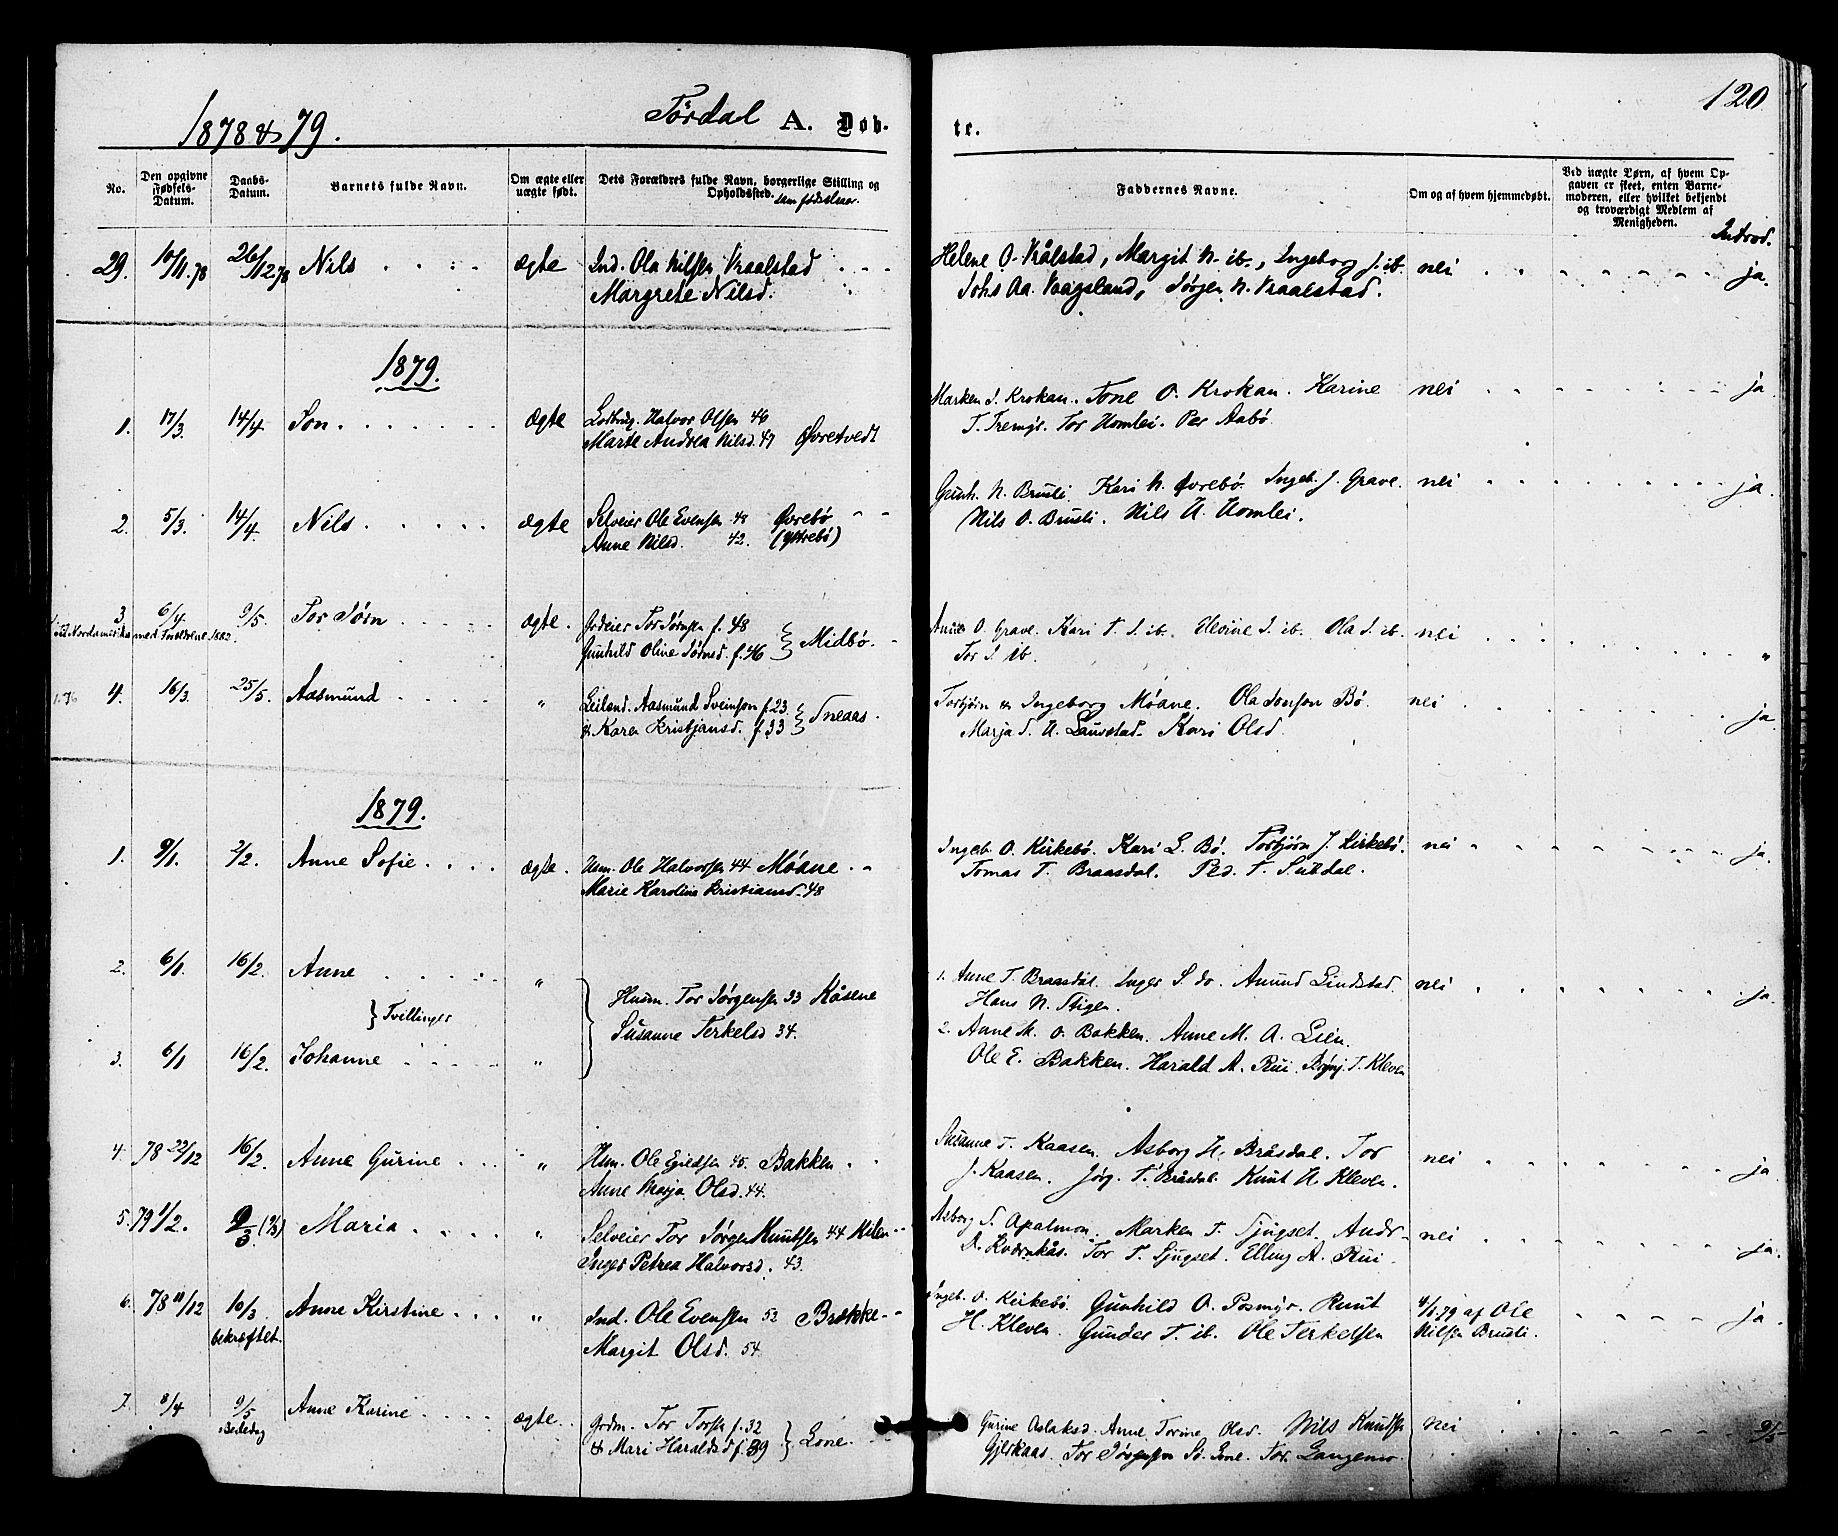 1878 & 79. Tørdal A. Døb- te. 120
No. Den opgivne Fødsels-Datum. Daabs-Datum. Barnets fulde Navn. Om ægte eller uægte født. Dets Forældres fulde Navn, borgerlige Stilling og Opholdssted. sam fødselsaar. Faddernes Navne. Om og af hvem hjemmedøbt. Ved uægte Børn, af hvem Opgaven er skeet, enten Barnemoderen, eller hvilket bekjendt og troværdigt Medlem af Menigheden. Introd.
29. 10/11.78 26/12 78 Nils ægte Ind. Ola Nilsen Vraalstad Helene O. Vrålstad, Margit N. ib., Ingeborg J. ib. nei ja.
Margrete Nilsd. Johs Aa. Vaagsland, Jørgen N. Vraalstad.
1879.
1. 17/3. 14/4 Jon. ægte Halvor Olsen 46 Marken J. Krokan. Tone O. Krokan. Karine nei ja
Marte Andrea Nilsd. 47 Øvretvedt Tor Homlei. Per Aabø
2. 5/3. 14/4. Nils. ægte Selveier Ole Evensen 48 Øvrebø Gunh. N. Brusli. Kari N. Øvrebø. Ingeb. J. Grave. nei ja.
Anne Nilsd. 42. (Yttrebø) Nils O. Brusli. Nils H. Homlei.
3 6/4 9/5. Tor Jørn ægte. Grdeier Tor Jørnsen f. 48 O. Grave. Kari T. J. ib. J. ib. Ola J. ib. nei "
til Nordamerika med Forældrene 1882. Gunhild Oline Jørnsd. f. 46 } Midbø. Tor J. ib.
4. 16/3. 25/5. Aasmund " Leilend. Aasmund Sveinson f. 23 Torbjørn & Ingeborg Móane. Ola Jonson Bø. nei ja
& Karen Kristjansd. f. 33 } Sneaas. Marja J. Kari Olsd.
1879.
1. 9/1. 2/2. Anne Sofie. ægte. Husm. Ole Halvorsen 44 Móane Ingeb. O. Kirkebø. Kari L. Bø. Torbjørn J. Kirkebø. nei ja.
Marie Karoline Kristiansd. 48 Tomas T. Braasdal. Ped. T. Subdal.
2. 6/1. 16/2. Anne " 1. Anne T. Braasdal. Inger S. do. Amund Lindstad. nei ja.
} Tvillinger Husm. Tor Jørgensen 33 Kåsene Hans N. Stigen.
Susanne Terkelsd 34. 2. Anne M. O. Bakken. Anne M. A. Lien.
3. 6/1 16/2. Johanne " Ole E. Bakken. Harald A. Rui. Brynj. T. Kleven
4. 78 22/12 16/2. Anne Gurine " Hsm. Ole Egildsen 45. Bakken Susanne T. Kaasen. Asborg H. Bråsdal. Tor nei ja
Anne Marja Olsd. 44. J. Kaasen. Jørg. T. Bråsdal. Knut H. Kleven.
5. 79 1/2. 9/3. (9/3) Maria " Selveier Tor Jørgen Knutsen 44 Asborg S. Apalmon. Marken T. Tjugset. Andr. nei ja.
Inger Petrea Halvorsd. 43. D. Kvernkås. Tor T. Tjugset. Elling A. Rui.
6. 78 11/12 10/3 Anne Kirstine " Ind. Ole Evensen 52 Brække Ingeb. O. Kirkebø. Gunhild O. Posmyr. Knut 4/1.79 af Ole ja.
bekræftet. Margit Olsd. 54 H. Kleven. Gunder T. ib. Ole Terkelsen Nilsen Brusli.
7. 8/4 9/5 Anne Karine ægte. Grdm. Tor Torsen f. 32 Gurine Aslaksd. Anne Torine Olsd. Nils Knudsen nei 9/5
Bededag & Mari Haraldsd f. 39 } Lone. Tor Jørgensen Tor Langemo.